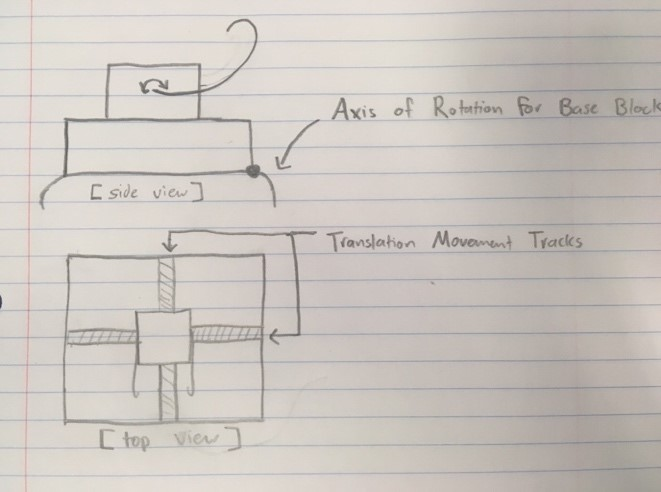 Axis of Rotation for Base Block
[side view]
Translation Movement Tracks
[top view]